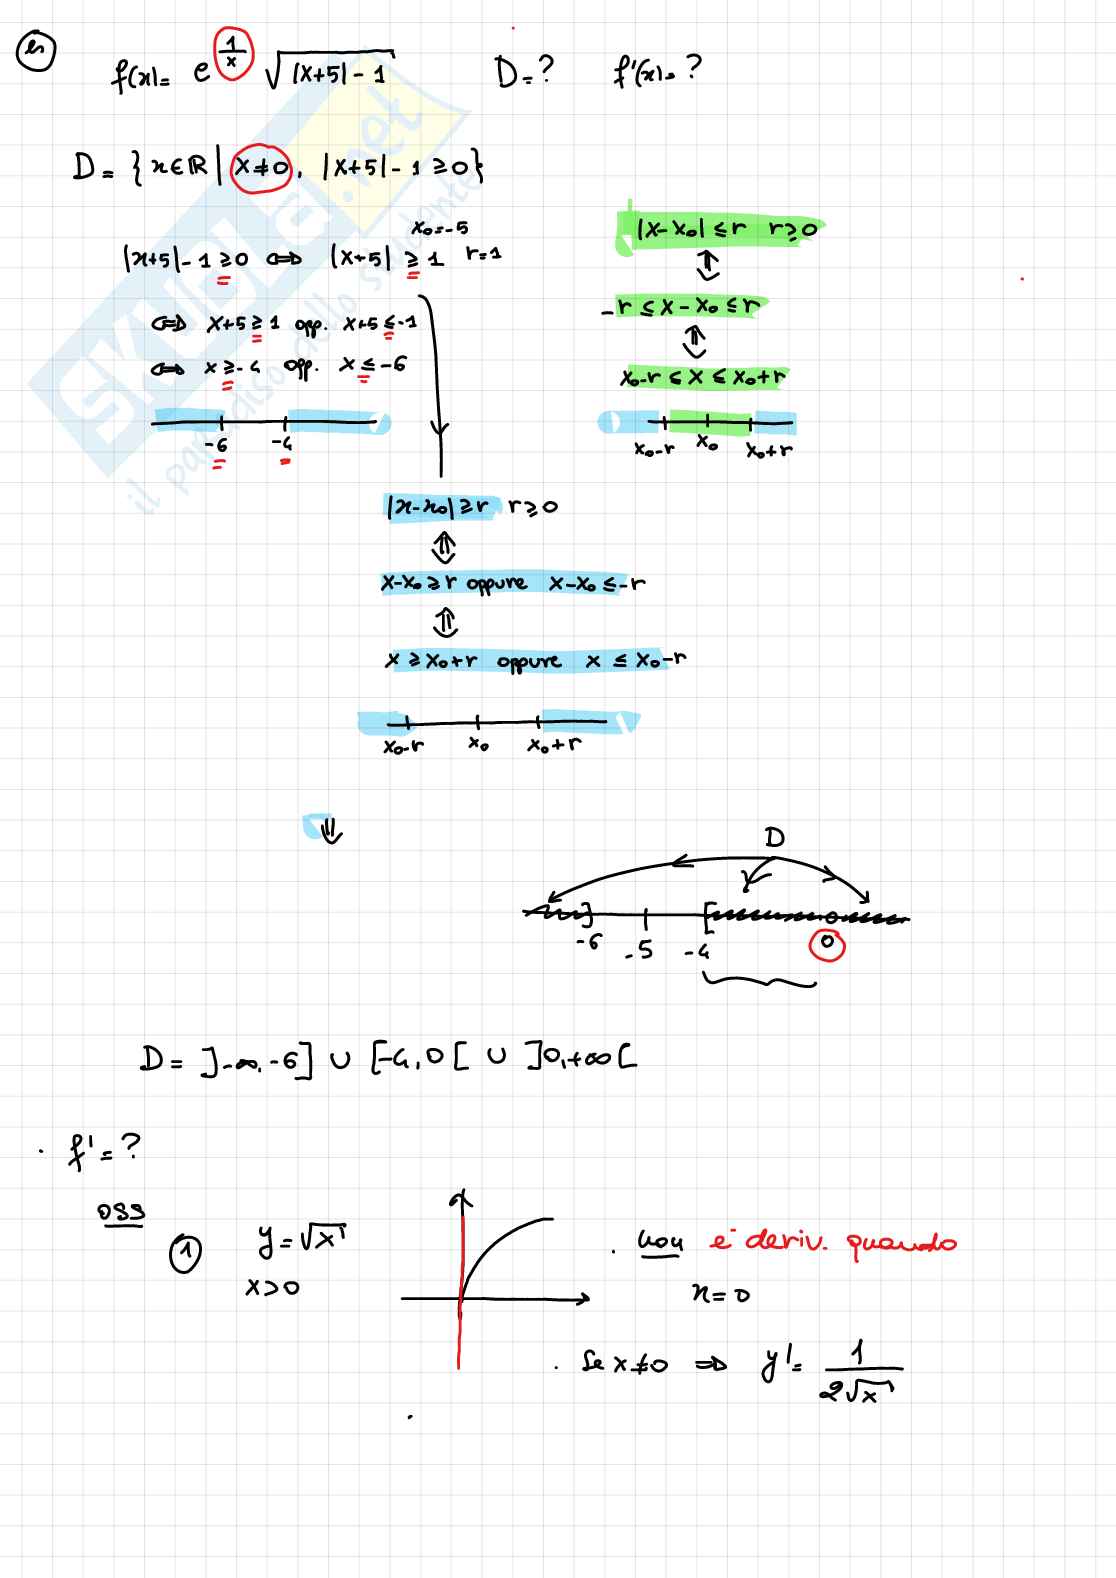 es
f(x)= e^{1/x} √(|x+5|-1)   D=?   f'(x)=?
D= {x∈ℝ | x≠0, |x+5|-1≥0}
x₀=-5
|x+5|-1≥0 ⟺ |x+5| ≥ 1   r=1
⟺ x+5≥1 opp. x+5≤-1
⟺ x≥-4 opp. x≤-6
-6   -4
|x-x₀|≤r   r≥0
⇕
-r ≤ x-x₀ ≤ r
⇕
x₀-r ≤ x ≤ x₀+r
x₀-r   x₀   x₀+r
|x-x₀|≥r   r≥0
⇕
x-x₀≥r oppure x-x₀≤-r
⇕
x ≥ x₀+r oppure x ≤ x₀-r
x₀-r   x₀   x₀+r
⇓
D
-6   -5   -4   0
D= ]-∞,-6] ∪ [-4,0[ ∪ ]0,+∞[
· f'=?
oss
① y=√x
x>0
· non è deriv. quando
x=0
· se x≠0 ⟹ y'= 1/(2√x)
SKUOLA.net
il paradiso dello studente